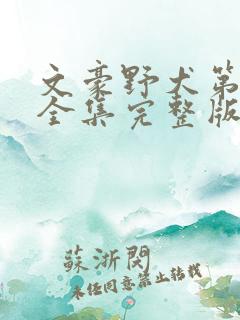 文豪野犬第
全集完整版
蘇浙閱
未经同意禁止转载